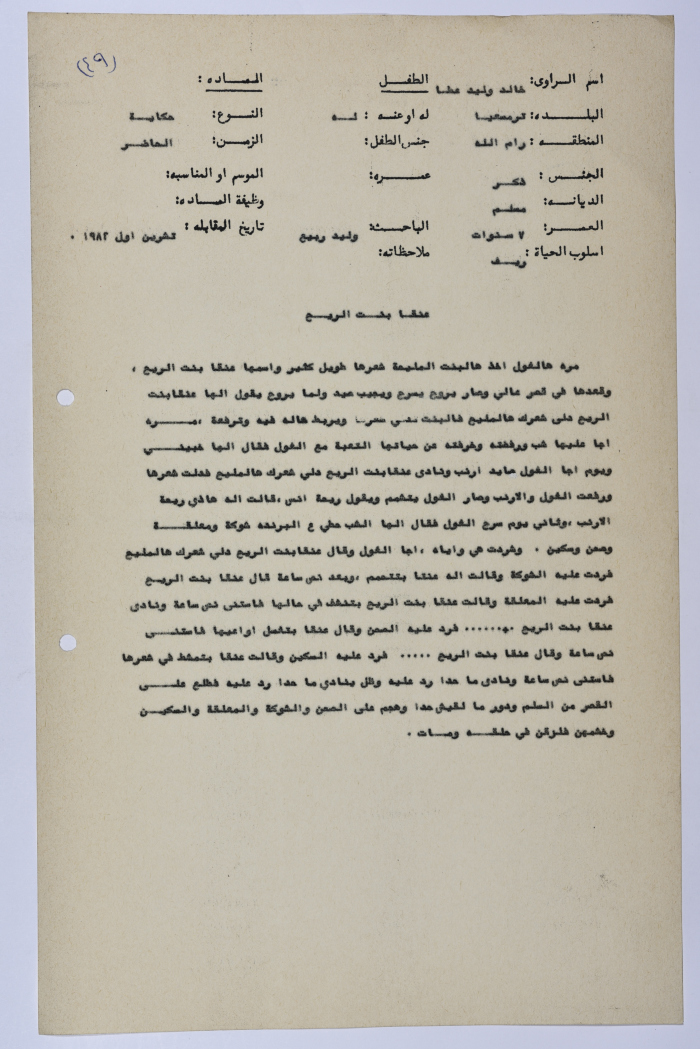 (٤٩)
اسم الراوى: خالد وليد عطا الطفل المادة:
البلده: ترمسعيا له او عنه: له النوع: حكاية
المنطقه: رام الله جنس الطفل: الزمن: الحاضر
الجنس: ذكر عمره: الموسم او المناسبه:
الديانه: مسلم وظيفة الماده:
العمر: ٧ سنوات الباحث: وليد ربيع تاريخ المقابله: تشرين اول ١٩٨٢ .
اسلوب الحياة: ريف ملاحظاته:
عنقا بنت الريح
مره هالغول اخذ هالبنت المليحة شعرها طويل كثير واسمها عنقا بنت الريح ،
وقعدها في قصر عالي وصار يروح يسرح ويجيب صيد ولما يروح يقول الها عنقابنت
الريح دلي شعرك هالمليح فالبنت شعرها ويربط حاله فيه وترفعه ،مره
اجا عليها شب ورفعته وعرفته عن حياتها التعبة مع الغول فقال الها خبيني
ويوم اجا الغول صايد ارنب ونادى عنقابنت الريح دلي شعرك هالمليح فدلت شعرها
ورفعت الغول والارنب وصار الغول يتشمم ويقول ريحة انس ،قالت اله هاذي ريحة
الارنب ،وثاني يوم سرح الغول فقال الها الشب حطي ع البرنده شوكة ومعلقة
وصحن وسكين . وشردت هي واياه ،اجا الغول وقال عنقابنت الريح دلي شعرك هالمليح
فردت عليه الشوكة وقالت اله عنقا بتتحمم ،وبعد نص ساعة قال عنقا بنت الريح
فردت عليه المعلقة وقالت عنقا بنت الريح بتنشف في حالها فاستنى نص ساعة ونادى
عنقا بنت الريح ....... فرد عليه الصحن وقال عنقا بتغسل اواعيها فاستنى
نص ساعة وقال عنقا بنت الريح ..... فرد عليه السكين وقالت عنقا بتمشط في شعرها
فاستنى نص ساعة ونادى ما حدا رد عليه وظل ينادي ما حدا رد عليه فطلع على
القصر من السلم ودور ما لقيش حدا وهجم على الصحن والشوكة والمعلقة والسكين
وغشمهن فلزقن في حلقه ومات .